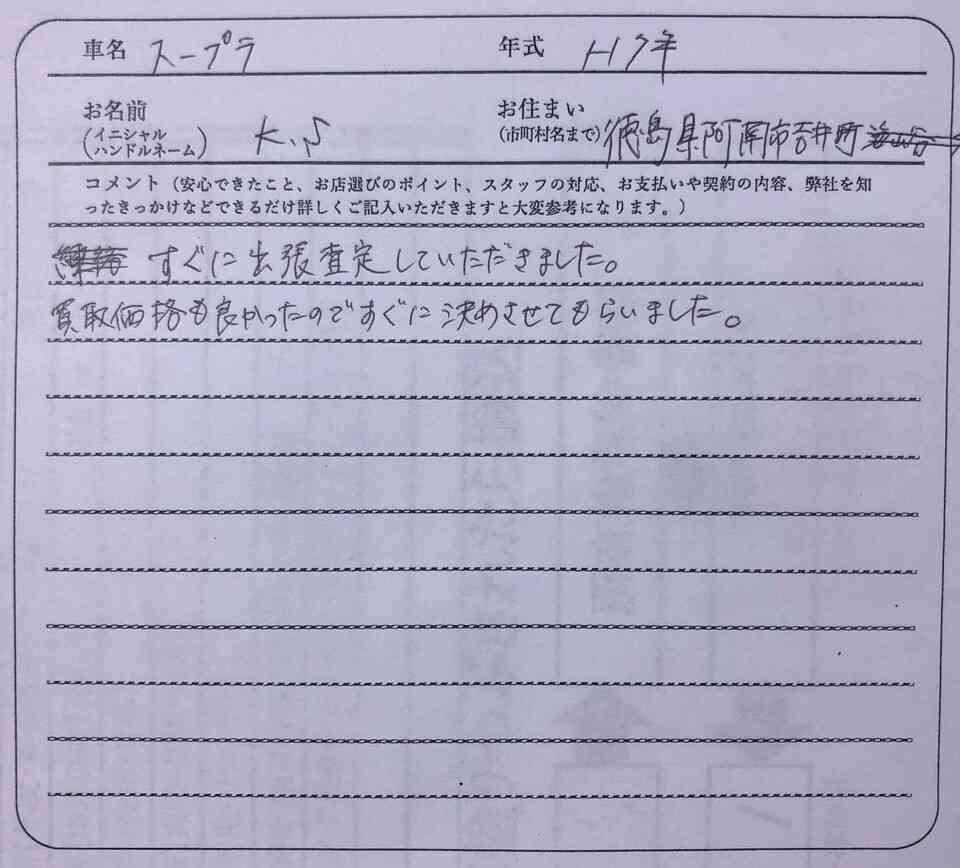 車名 スープラ 年式 H7年
お名前 (イニシャル ハンドルネーム) K.S お住まい (市町村名まで) 徳島県阿南市吉井町
コメント（安心できたこと、お店選びのポイント、スタッフの対応、お支払いや契約の内容、弊社を知
ったきっかけなどできるだけ詳しくご記入いただきますと大変参考になります。）
すぐに出張査定していただきました。
買取価格も良かったのですぐに決めさせてもらいました。